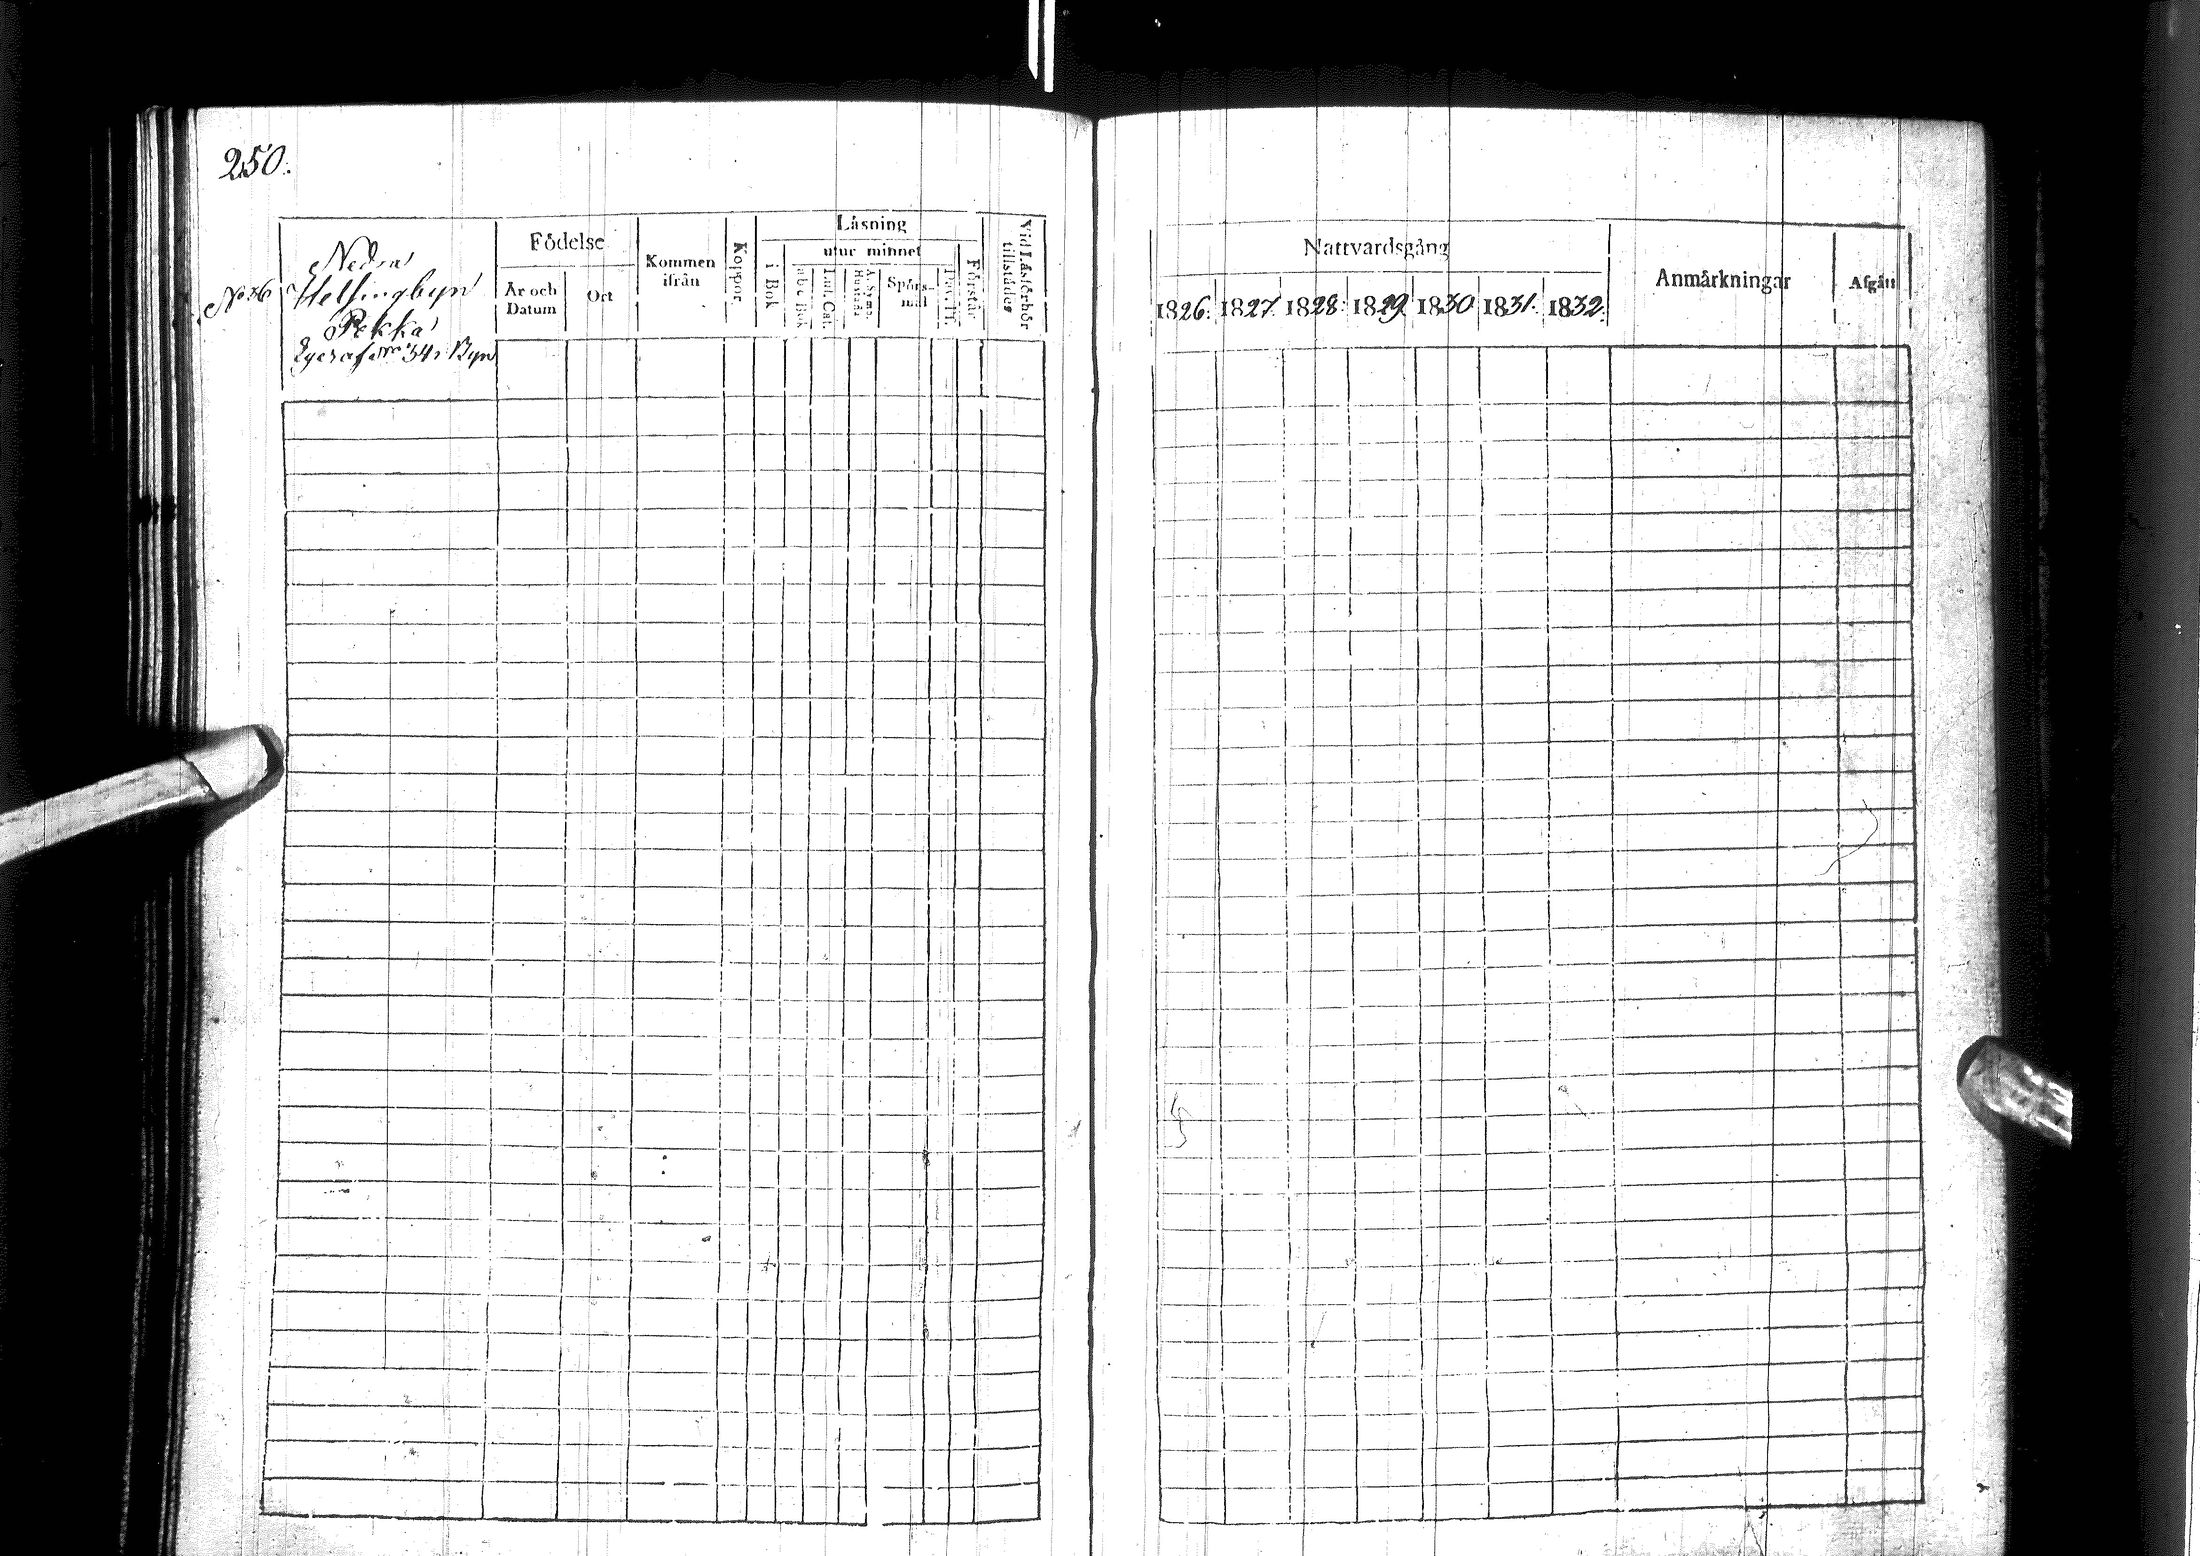 250.
No 36
Nedra
Helsingbyn
Pekka
Eges af No 34 i Byn
Födelse
År och Datum
Ort
Kommen ifrån
Koppor.
Läsning
utur minnet
i Bok
a b c Bok
Lut. Cat.
Spörs-
mål
Förstår
Vid Läsförhör
tillstädes
Nattvardsgång
1826. 1827. 1828. 1829. 1830 1831. 1832.
Anmärkningar
Afgått